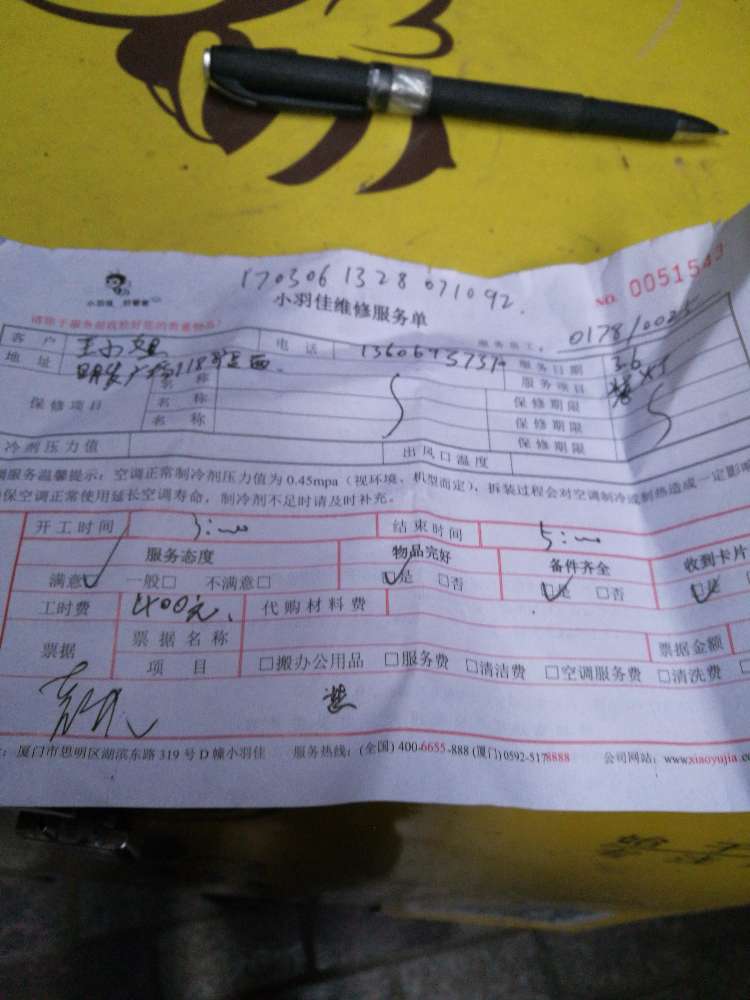 170306 1328 071092.
小羽佳 好管家
小羽佳维修服务单
NO. 0051543
请妥于服务前收拾好您的贵重物品！
服务员工: 0178/0025
客户 王小姐 电话 服务日期 3.6
地址 服务项目
保修项目 名称 保修期限
名称 保修期限
名称 保修期限
冷剂压力值 出风口温度
服务温馨提示：空调正常制冷剂压力值为 0.45mpa（视环境、机型而定），拆装过程会对空调制冷或制热造成一定影
保空调正常使用延长空调寿命，制冷剂不足时请及时补充。
开工时间 3:00 结束时间 5:00
服务态度 物品完好 备件齐全 收到卡片
满意☑ 一般□ 不满意□ ☑是 □否 ☑是 □否 ☑是
工时费 400元. 代购材料费
票据 票据名称 票据金额
项目 □搬办公用品 □服务费 □清洁费 □空调服务费 □清洗费
：厦门市思明区湖滨东路 319 号 D 幢小羽佳 服务热线：(全国) 400-6655-888 (厦门) 0592-5178888 公司网站：www.xiaoyujia.co